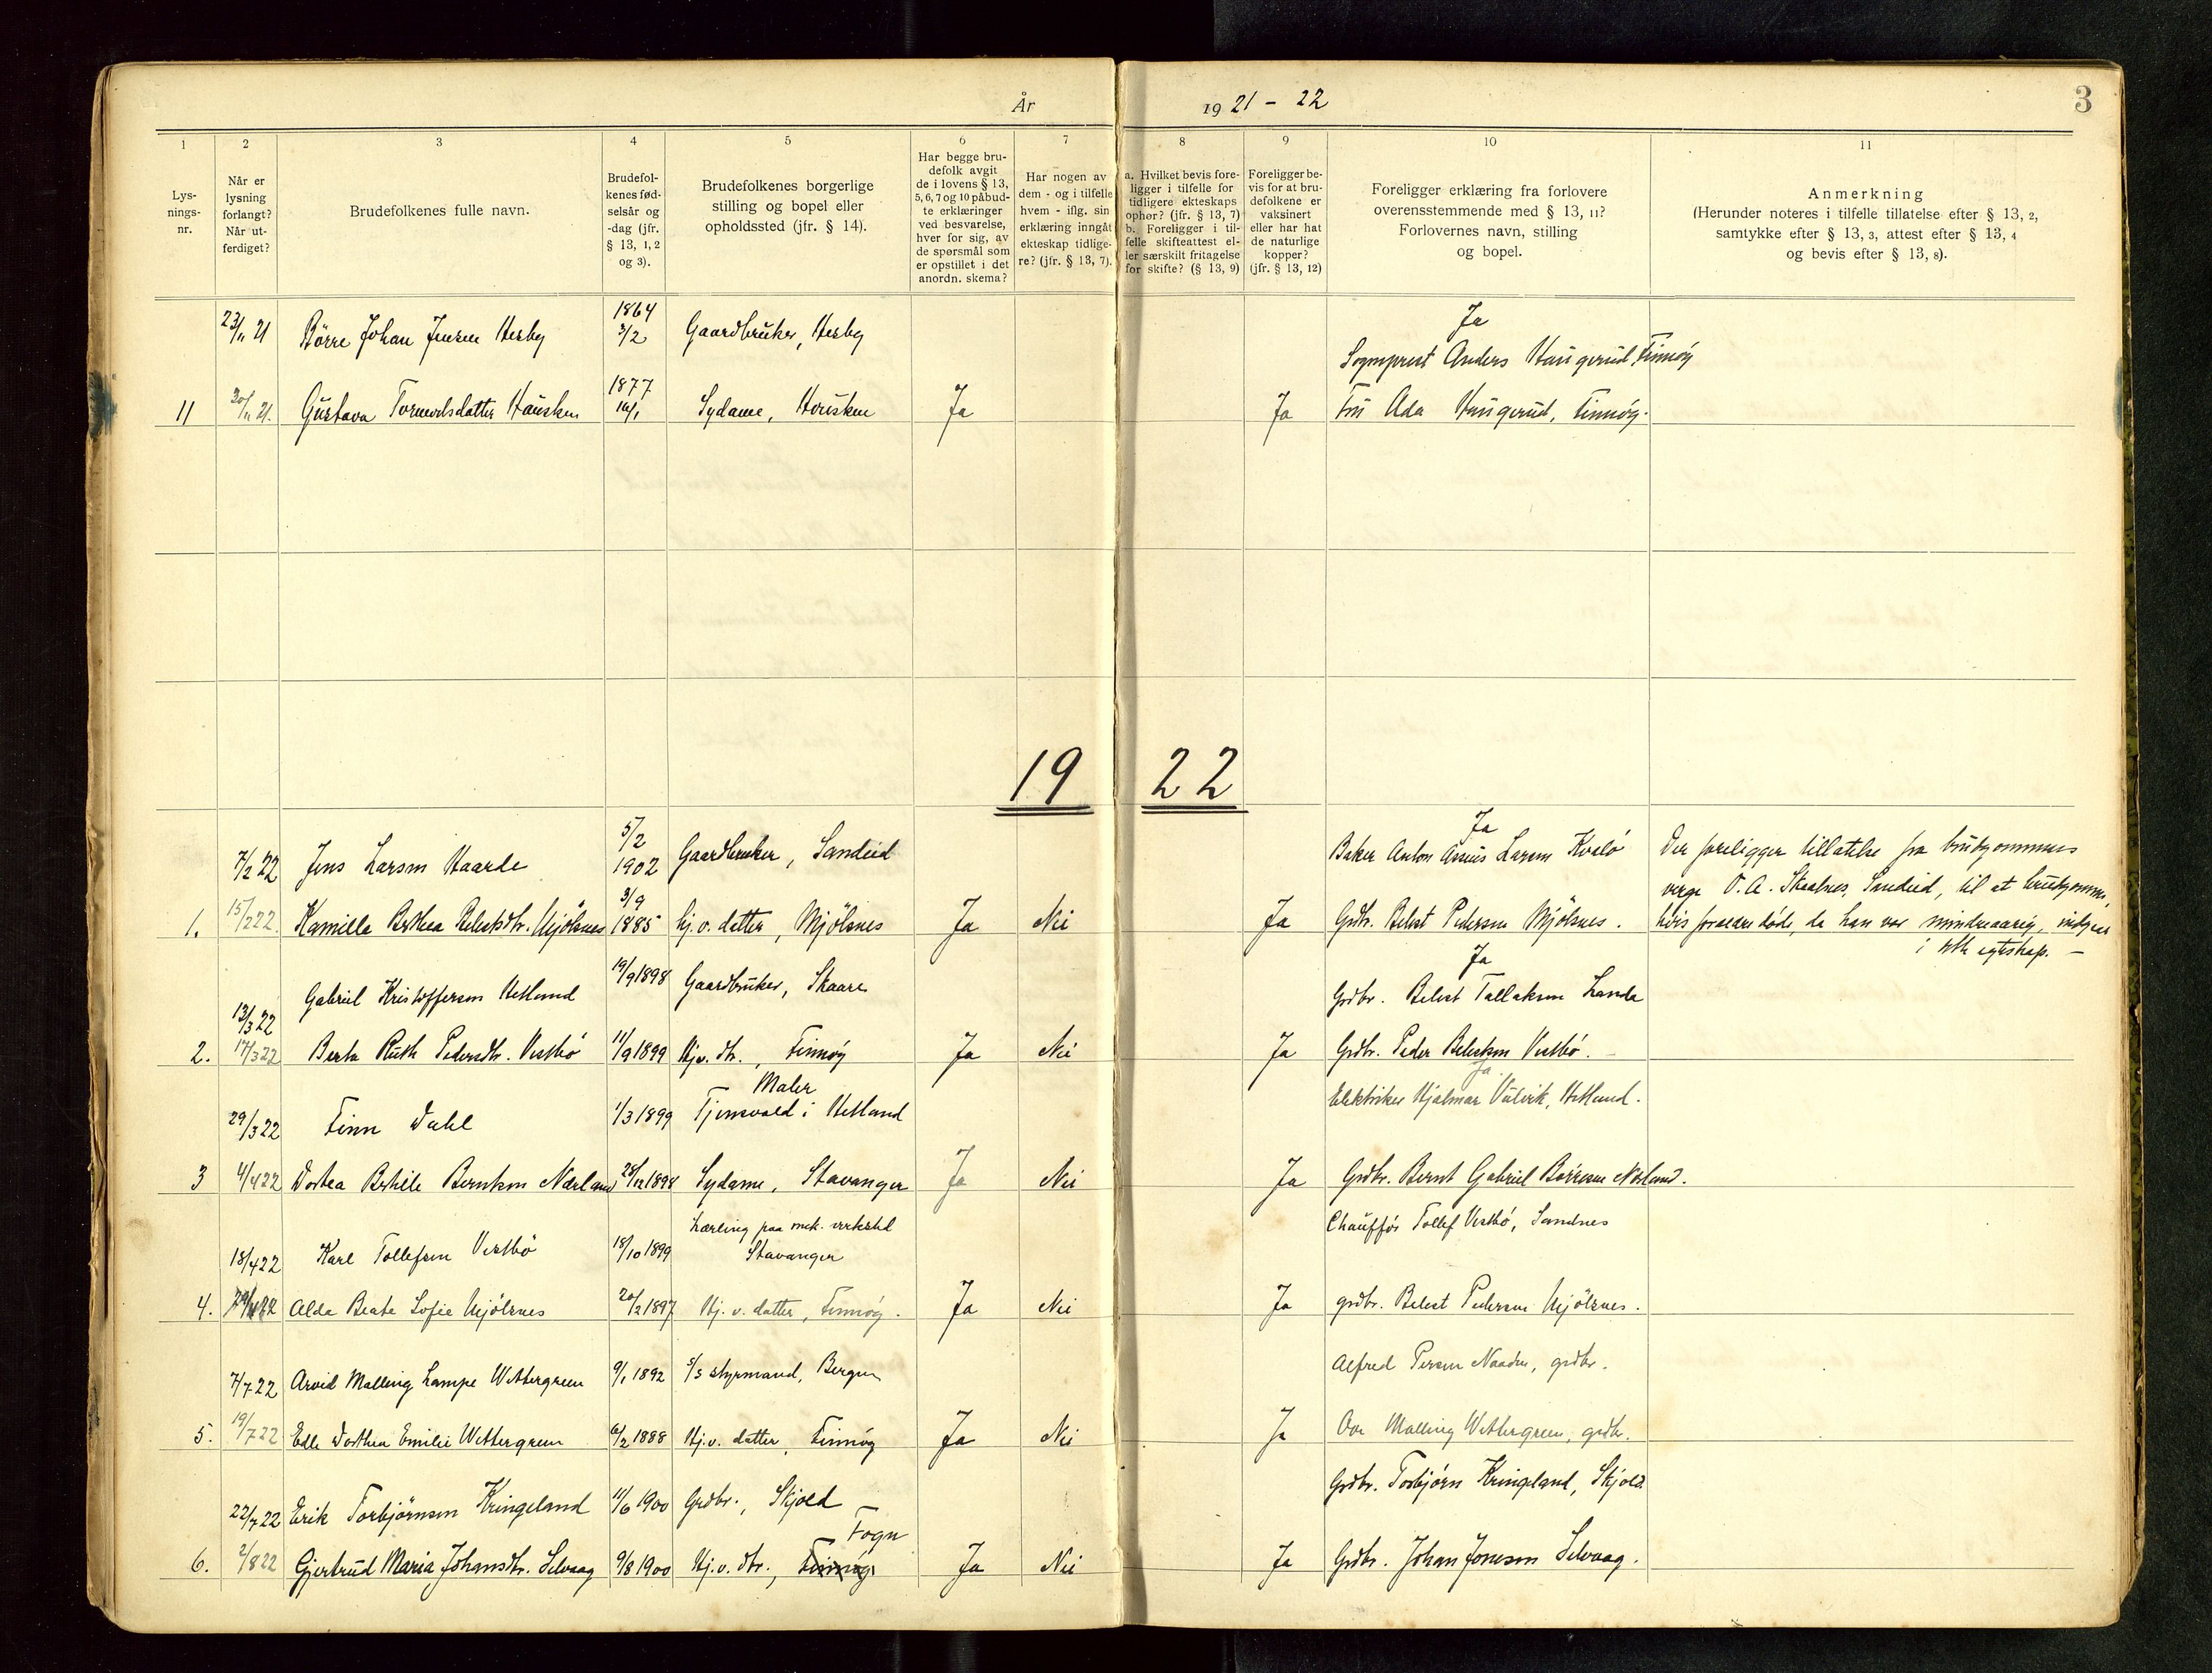 År
19 21 - 22
3
1
2
3
4
5
6
7
8
9
10
11
Lys-
nings-
nr.
Når er
lysning
forlangt?
Når ut-
ferdiget?
Brudefolkenes fulle navn.
Brudefol-
kenes fød-
selsår og
-dag (jfr.
§ 13, 1, 2
og 3).
Brudefolkenes borgerlige
stilling og bopel eller
opholdssted (jfr. § 14).
Har begge bru-
defolk avgit
de i lovens § 13,
5, 6, 7 og 10 påbud-
te erklæringer
ved besvarelse,
hver for sig, av
de spørsmål som
er opstillet i det
anordn. skema?
Har nogen av
dem - og i tilfelle
hvem - iflg. sin
erklæring inngåt
ekteskap tidlige-
re? (jfr. § 13, 7).
a. Hvilket bevis fore-
ligger i tilfelle for
tidligere ekteskaps
ophør? (jfr. § 13, 7)
b. Foreligger i til-
felle skifteattest el-
ler særskilt fritagelse
for skifte? (§ 13, 9)
Foreligger be-
vis for at bru-
defolkene er
vaksinert
eller har hat
de naturlige
kopper?
(jfr. § 13, 12)
Foreligger erklæring fra forlovere
overensstemmende med § 13, 11?
Forlovernes navn, stilling
og bopel.
Anmerkning
(Herunder noteres i tilfelle tillatelse efter § 13, 2,
samtykke efter § 13, 3, attest efter § 13, 4
og bevis efter § 13, 8).
23/11 21 Børre Johan Jensen Hesby 1864 3/2 Gaardbruker, Hesby Ja
Sogneprest Anders Haugerud Finnøy
11 30/11 21. Gustava Tormodsdatter Hausken 1877 16/1 Sydame, Hausken Ja Ja Fru Ada Haugerud, Finnøy.
19 22
7/2 22 Jens Larsen Haarde 5/2 1902 Gaardbruker, Sandeid Ja Baker Anton Larsen Kvalö Der foreligger tillatelse fra brudgommens
verge O. A. Skaalnes, Sandeid, til at brudgommen,
1. 15/2 22. Kamilla Berthea Belestdtr. Mjölsnes 3/9 1885 hj. v. datter, Mjölsnes Ja Nei Ja Grdbr. Belest Pedersen Mjölsnes. hvis foraeldre döde, da han var mindreaarig, indgaar
i dette egteskap. —
13/3 22 Gabriel Kristoffersen Hetland 19/9 1898 Gaardbruker, Skaare Ja Grdbr. Belest Tallaksen Landa
2. 17/3 22 Berta Ruth Pedersdtr. Vestbö 11/9 1899 Hj. v. dtr., Finnöy Ja Nei Ja Grdbr. Peder Belestsen Vestbö.
29/3 22 Finn Dahl 1/3 1899 Maler
Tjensvold i Hetland Ja Elektriker Hjalmar Vulvik, Hetland.
3 4/4 22 Dortea Bertille Berntsen Nærland 28/12 1898 Sydame, Stavanger Ja Nei Ja Grdbr. Bernt Gabriel Børresen Nærland.
18/4 22 Karl Tollefsen Vestbö 18/10 1899 Lærling paa mek. verksted
Stavanger Chauffør Tollef Vestbö, Sandnes
4. Alda Beate Sofie Mjölsnes 20/2 1897 Hj. v. datter, Finnöy. Ja Nei Ja grdbr. Belest Pedersen Mjölsnes.
7/7 22 Arvid Malling Lampe Wettergreen 9/1 1892 s/s styrmand, Bergen Alfred Persen Naaden, grdbr.
5. 19/7 22 Edle Dorthea Emilie Wettergreen 6/2 1888 Hj. v. datter, Finnöy Ja Nei Ja Ove Malling Wettergreen, grdbr.
22/7 22 Erik Torbjörnsen Kringeland 11/6 1900 Grdbr., Skjold Grdbr. Torbjörn Kringeland, Skjold.
6. 2/8 22 Gjertrud Maria Johansdtr. Selvaag 9/8 1900 Hj. v. dtr., Finnöy Fogn Ja Nei Ja Grdbr. Johan Jonesen Selvaag.